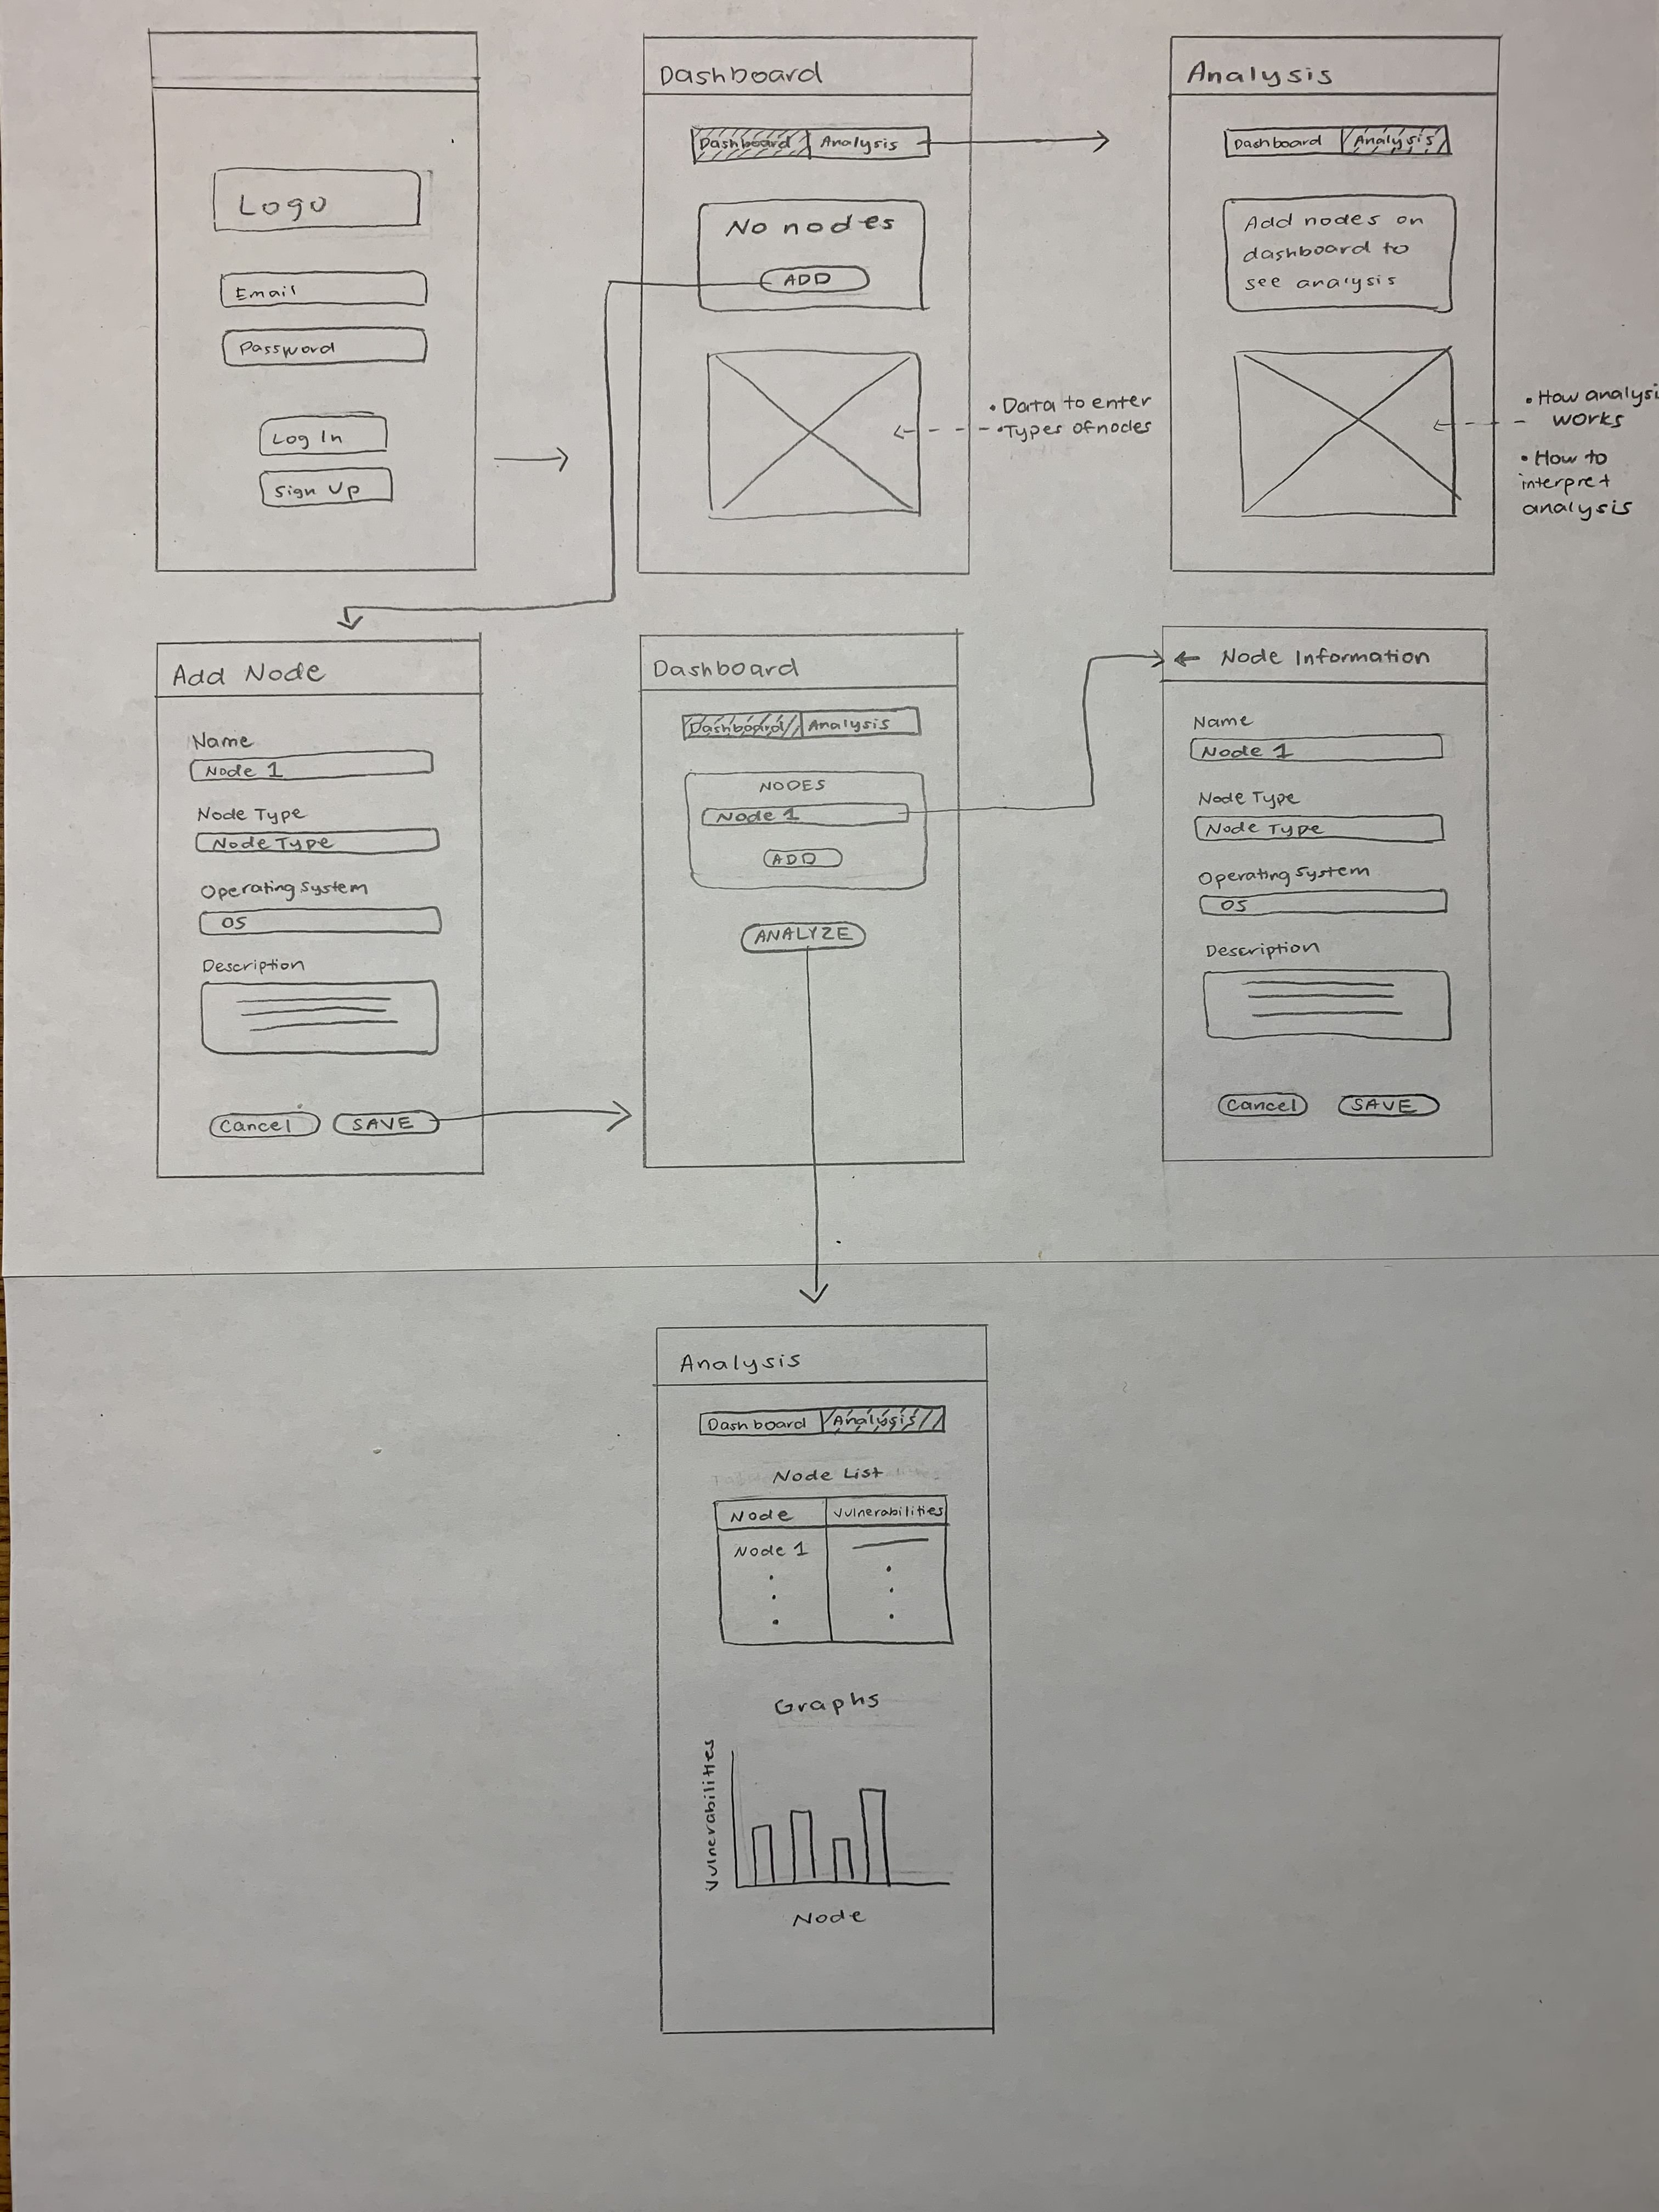 Logo
Email
Password
Log In
Sign Up
Dashboard
Dashboard Analysis
No nodes
ADD
• Data to enter
• Types of nodes
Analysis
Dashboard Analysis
Add nodes on
dashboard to
see analysis
• How analysi
works
• How to
interpret
analysis
Add Node
Name
Node 1
Node Type
Node Type
Operating System
OS
Description
Cancel SAVE
Dashboard
Dashboard Analysis
NODES
Node 1
ADD
ANALYZE
← Node Information
Name
Node 1
Node Type
Node Type
Operating System
OS
Description
Cancel SAVE
Analysis
Dashboard Analysis
Node List
Node Vulnerabilities
Node 1
Graphs
Vulnerabilities
Node